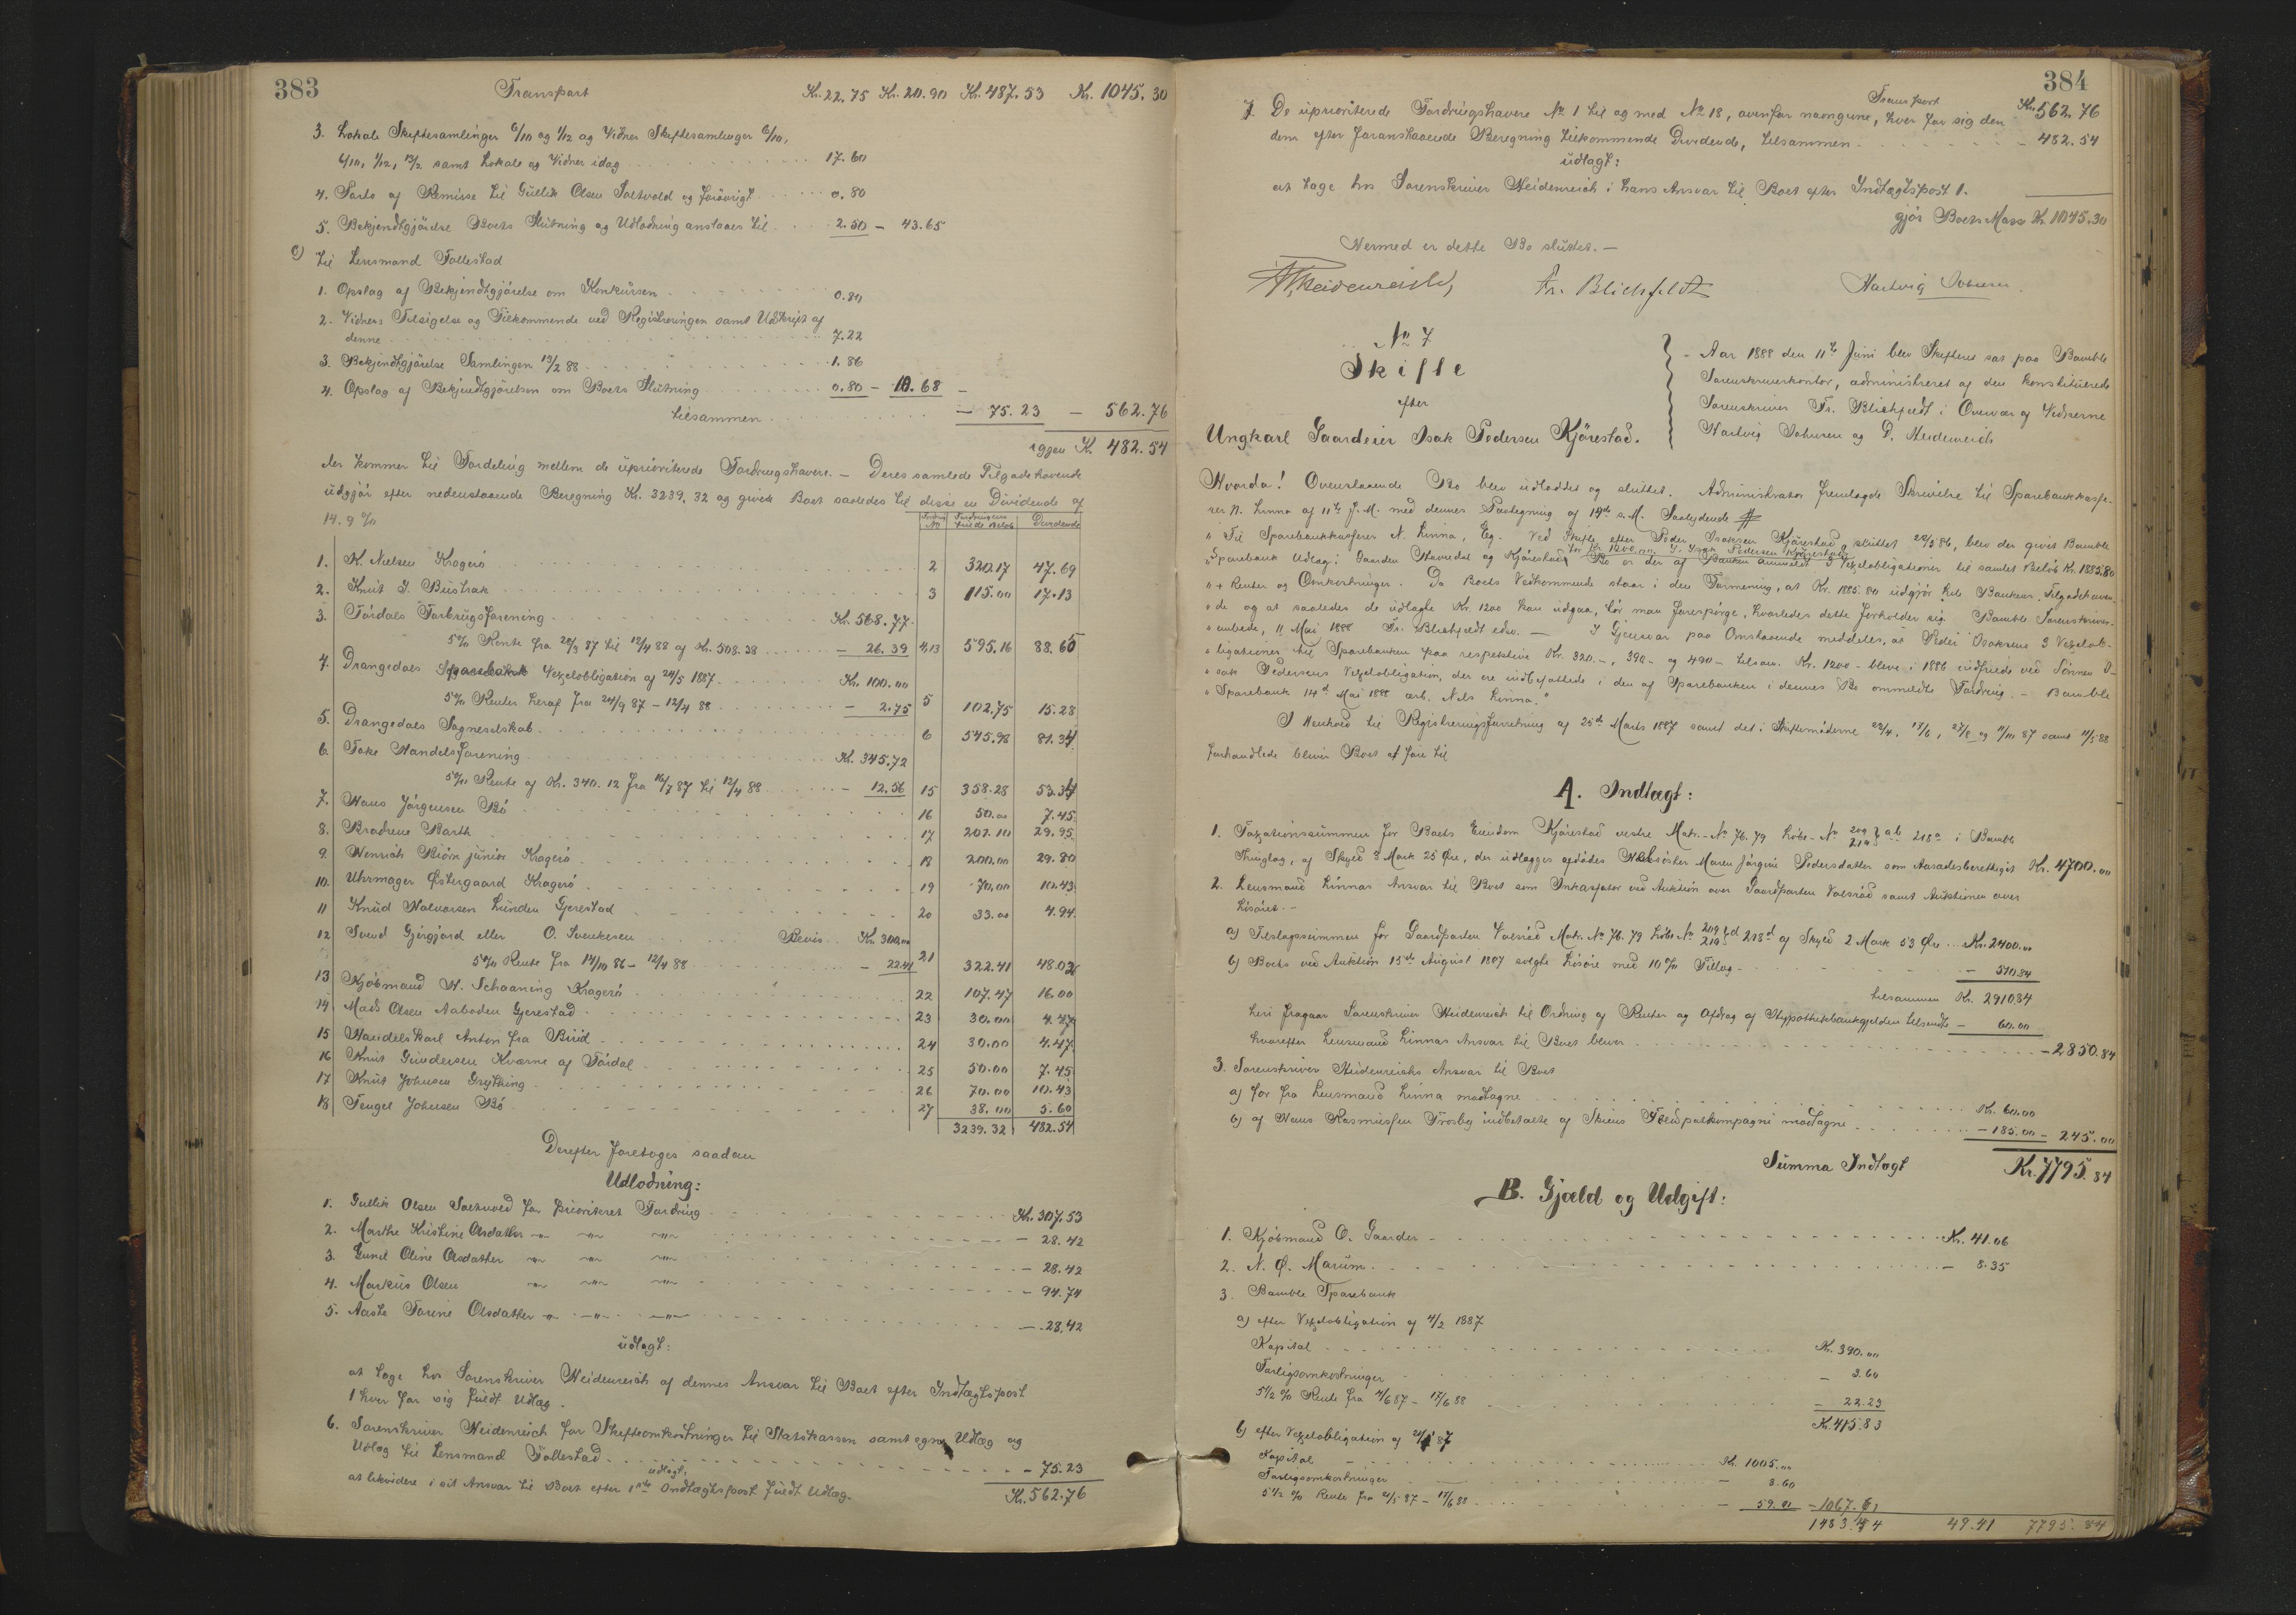 383
Transport Kr. 22.75 Kr. 20.90 Kr. 487.53 Kr. 1045.30
3. Lokale Skiftesamlinger 6/10 og 1/12 og Vidner Skiftesamlinger 6/10,
6/10, 1/12, 13/2 samt Lokale og Vidner idag 17.60
4. Porto af Remisse til Gullik Olsen og forøvrigt 0.80
5. Bekjendtgjørelse Boets Slutning og Udlodning anslaaes til 2.50 - 43.65
c) til Lensmand Tollestad
1. Opslag af Bekjendtgjørelse om Konkursen 0.80
2. Vidners Tilsigelse og Tilkommende ved Registreringen samt Udskrift af
denne 7.22
3. Bekjendtgjørelse Samlingen 13/2 88 1.86
4. Opslag af Bekjendtgjørelsen om Boets Slutning 0.80 - 10.68
tilsammen - 75.23 - 562.76
igjen Kr. 482.54
der kommer til Fordeling mellem de uprioriterede Fordringshavere. — Deres samlede Tilgodehavende
udgjør efter nedenstaaende Beregning Kr. 3239.32 og giver Boet saaledes til disse en Dividende af
14.9 %
Fordrings No Fordringens fulde Beløb Dividende
1. K. Nielsen Kragerø 2 320.17 47.69
2. Knut J. Bustrak 3 115.00 17.13
3. Tørdals Forbrugsforening Kr. 568.77
5% Rente fra 28/3 87 til 12/4 88 af Kr. 508.38 - 26.39 4,13 595.16 88.65
4. Drangedals Sparebank Vexelobligation af 24/5 1887 Kr. 100.00
5% Renter heraf fra 24/9 87 - 12/4 88 - 2.75 5 102.75 15.28
5. Drangedals Sogneselskab 6 545.98 81.34
6. Toke Handelsforening Kr. 345.72
5% Rente af Kr. 340.12 fra 16/7 87 til 12/4 88 - 12.56 15 358.28 53.34
7. Hans Jørgensen Bø 16 50.00 7.45
8. Brødrene Barth 17 201.10 29.95
9. Henrich Biørn junior Kragerø 18 200.00 29.80
10. Uhrmager Østergaard Kragerø 19 70.00 10.43
11 Knud Halvorsen Lunden Gjerestad 20 33.00 4.94
12 Svend Gjergjord eller O. Svenkesen Bevis Kr. 300.00
5% Rente fra 14/10 86 - 12/4 88 - 22.41 21 322.41 48.03
13 Kjøbmand H. Schaaning Kragerø 22 107.47 16.00
14 Mads Olsen Aaboden Gjerestad 23 30.00 4.47
15 Handelskarl Anton fra Buid 24 30.00 4.47
16 Knut Gundersen Kværne af Tørdal 25 50.00 7.45
17 Knut Johnsen Grytting 26 70.00 10.43
18 Tengel Johnsen Bø 27 38.00 5.60
3239.32 482.54
Derefter foretoges saadan
Udlodning:
1. Gullik Olsen for prioriteret Fordring Kr. 307.53
2. Marthe Kristine Olsdatter -"- -"- -"- - 28.42
3. Gunil Oline Olsdatter -"- -"- -"- - 28.42
4. Markus Olsen -"- -"- -"- - 94.74
5. Aaste Torine Olsdatter -"- -"- -"- - 28.42
udlagt:
at tage hos Sorenskriver Heidenreich af dennes Ansvar til Boet efter Indtægtspost
1 hver for sig fuldt Udlæg.
6. Sorenskriver Heidenreich for Skifteomkostninger til Statskassen samt egne Udlæg og
Udlæg til Lensmand Tollestad - 75.23
udlagt:
at likvidere i sit Ansvar til Boet efter 1ste Indtægtspost fuldt Udlæg. Kr. 562.76
384
Transport Kr. 562.76
7. De uprioriterede Fordringshavere No 1 til og med No 18, ovenfor navngivne, hver for sig den
dem efter foranstaaende Beregning tilkommende Dividende, tilsammen - 482.54
udlagt:
at tage hos Sorenskriver Heidenreich i hans Ansvar til Boet efter Indtægtspost 1.
gjør Boets Masse Kr. 1045.30
Hermed er dette Bo sluttet. —
Heidenreich, Fr. Blichfeldt Hartvig Johnsen
No 7
Skifte
efter
Ungkarl Gaardeier Isak Pedersen Kjørestad.
- Aar 1888 den 11te Juni blev Skifteret sat paa Bamble
Sorenskriverkontor, administreret af den konstituerede
Sorenskriver Fr. Blichfeldt i Overvær af Vidnerne
Hartvig Johnsen og D. Heidenreich
Hvorda! Ovenstaaende Bo blev udloddet og sluttet. Administrator fremlagde Skrivelse til Sparebankkasse-
rer N. Linna af 11te f. M. med dennes Paategning af 14de s. M. saalydende
" Til Sparebankkasserer N. Linna, Eg. Ved Skifte efter Peder Isaksen Kjørestad, sluttet 22/5 86, blev der givet Bamble
" Sparebank Udlæg i Gaarden Haredal og Kjørestad for Kr. 1200.00. I Isak Pedersen Kjørestads Bo er der af Banken anmeldt 3 Vexelobligationer til samlet Beløb Kr. 1885.80
" + Renter og Omkostninger. Da Boets Vedkommende staar i den Formening, at Kr. 1885.80 udgjør hele Bankens Tilgodehaven-
" de og at saaledes de udlagte Kr. 1200 kan udgaa, tør man forespørge, hvorledes dette forholder sig. Bamble Sorenskriver-
" embede, 11 Mai 1888 Fr. Blichfeldt edsv. — I Gjensvar paa Omstaaende meddeles, at Peder Isaksens 3 Vexelob-
" ligationer til Sparebanken paa respektive Kr. 320.-, 390.- og 490.- tilsam. Kr. 1200 - bleve i 1886 indfriede ved Sønnen I-
" sak Pedersens Vexelobligation, der ere indbefattede i den af Sparebanken i dennes Bo anmeldte Fordring. - Bamble
" Sparebank 14d Mai 1888 ærb. Nils Linna."
I Henhold til Registreringsforretning af 25de Marts 1887 samt det i Skiftemøderne 22/4, 17/6, 27/8 og 11/11 87 samt 11/5 88
forhandlede bliver Boet at føre til
A. Indtægt:
1. Taxationssummen for Boets Eiendom Kjørestad vestre Matr.-No 76.79 Løbe-No 209 210 ab 218a i Bamble
Thinglag, af Skyld 3 Mark 25 Øre, der udlægges afdødes Helsøster Maren Jørgine Pedersdatter som Aasædesberettiget Kr. 4700.00
2. Lensmand Linnas Ansvar til Boet som Inkassator ved Auktion over Gaardparten Valsrød samt Auktionen over
Løsøret. -
a) Tilslagssummen for Gaardparten Valsrød Matr. No 76.79 Løbe No 209 210 d 218d af Skyld 2 Mark 53 Øre Kr. 2400.00
b) Boets ved Auktion 15de August 1887 solgte Løsøre med 10% Tillæg - 510.84
tilsammen Kr. 2910.84
heri fragaar Sorenskriver Heidenreich til Ordning af Renter og Afdrag af Hypothekbankgjelden tilsendt - 60.00
hvorefter Lensmand Linnas Ansvar til Boet bliver - 2850.84
3. Sorenskriver Heidenreichs Ansvar til Boet
a) for fra Lensmand Linna modtagne Kr. 60.00
b) af Hans Rasmussen Trosby indbetalte af Skiens modtagne - 185.00 - 245.00
Summa Indtægt Kr. 7795.84
B. Gjæld og Udgift:
1. Kjøbmand O. Gaarder Kr. 41.06
2. N. O. Marum - 8.35
3. Bamble Sparebank
a) efter Vexelobligation af 4/2 1887
Kapital Kr. 390.00
Farligsomkostninger - 3.60
5 1/2 % Rente fra 4/6 87 - 17/6 88 - 22.23
Kr. 415.83
b) efter Vexelobligation af 21/1 87
Kapital Kr. 1005.00
Farligsomkostninger - 3.60
5 1/2 % Rente fra 21/5 87 - 17/6 88 - 59.01 - 1067.61
1483.44 49.41 7795.84